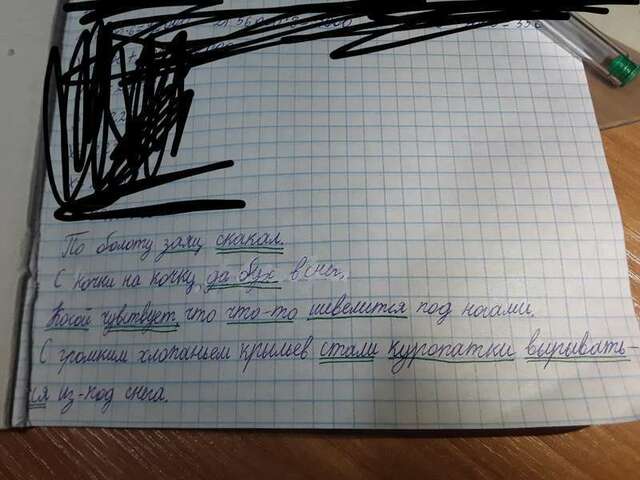 По болоту заяц скакал.
С кочки на кочку, да бух в снег.
Косой чувствует, что что-то шевелится под ногами.
С громким хлопаньем крыльев стали куропатки вырывать-
ся из-под снега.